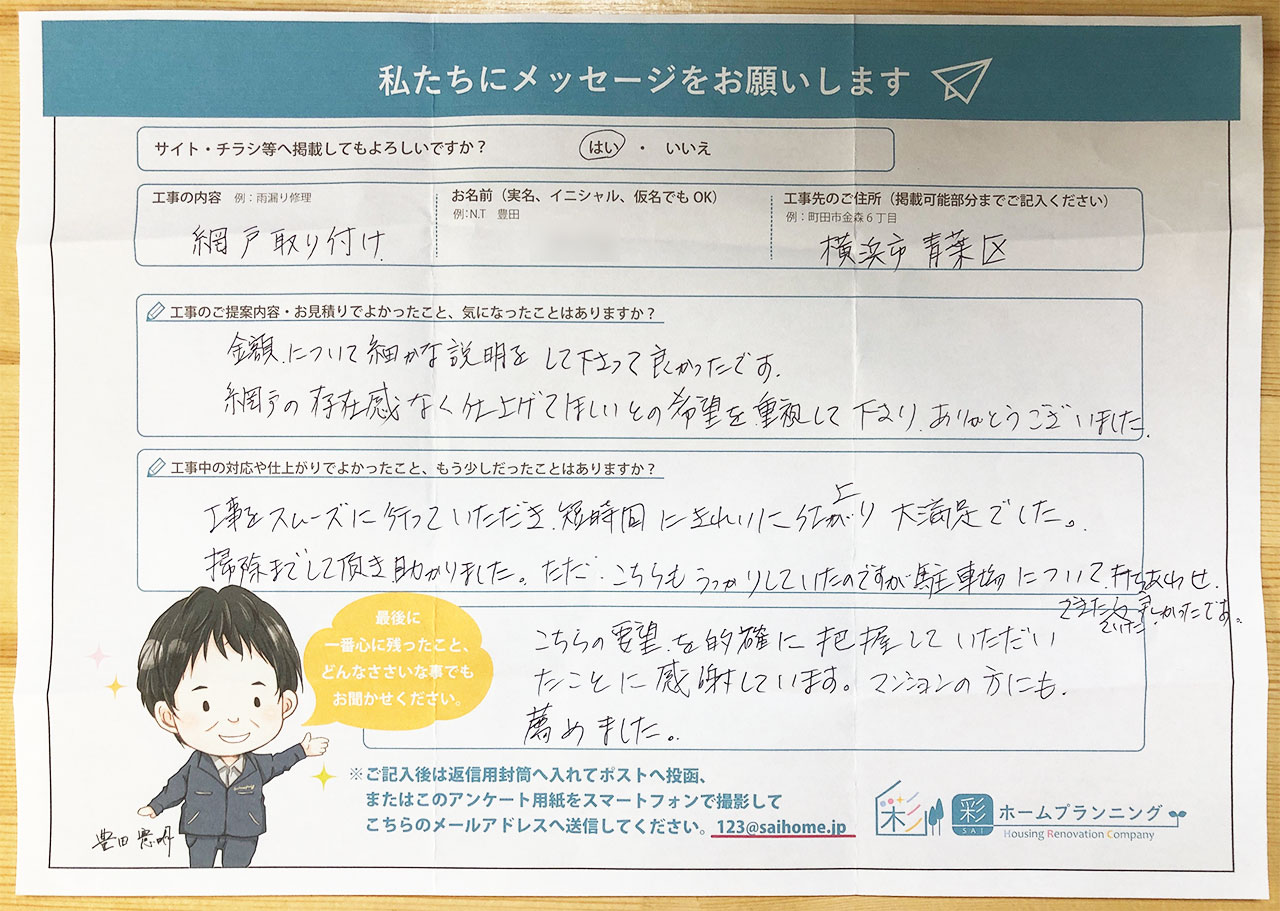 私たちにメッセージをお願いします
サイト・チラシ等へ掲載してもよろしいですか? はい ・ いいえ
工事の内容 例:雨漏り修理
網戸取り付け
お名前(実名、イニシャル、仮名でもOK)
例:N.T 豊田
工事先のご住所(掲載可能部分までご記入ください)
例:町田市金森6丁目
横浜市青葉区
工事のご提案内容・お見積りでよかったこと、気になったことはありますか?
金額について細かな説明をして下さって良かったです。
網戸の存在感なく仕上げてほしいとの希望を重視して下さり、ありがとうございました。
工事中の対応や仕上がりでよかったこと、もう少しだったことはありますか?
工事をスムーズに行っていただき、短時間にきれいに仕上がり大満足でした。
掃除までして頂き助かりました。ただ、こちらもうっかりしていたのですが駐車場について、打ちあわせ
できていたら良かったです。
最後に
一番心に残ったこと、
どんなささいな事でも
お聞かせください。
こちらの要望を的確に把握していただい
たことに感謝しています。マンションの方にも、
薦めました。
※ご記入後は返信用封筒へ入れてポストへ投函、
またはこのアンケート用紙をスマートフォンで撮影して
こちらのメールアドレスへ送信してください。123@saihome.jp
彩 彩 SAI ホームプランニング
Housing Renovation Company
豊田